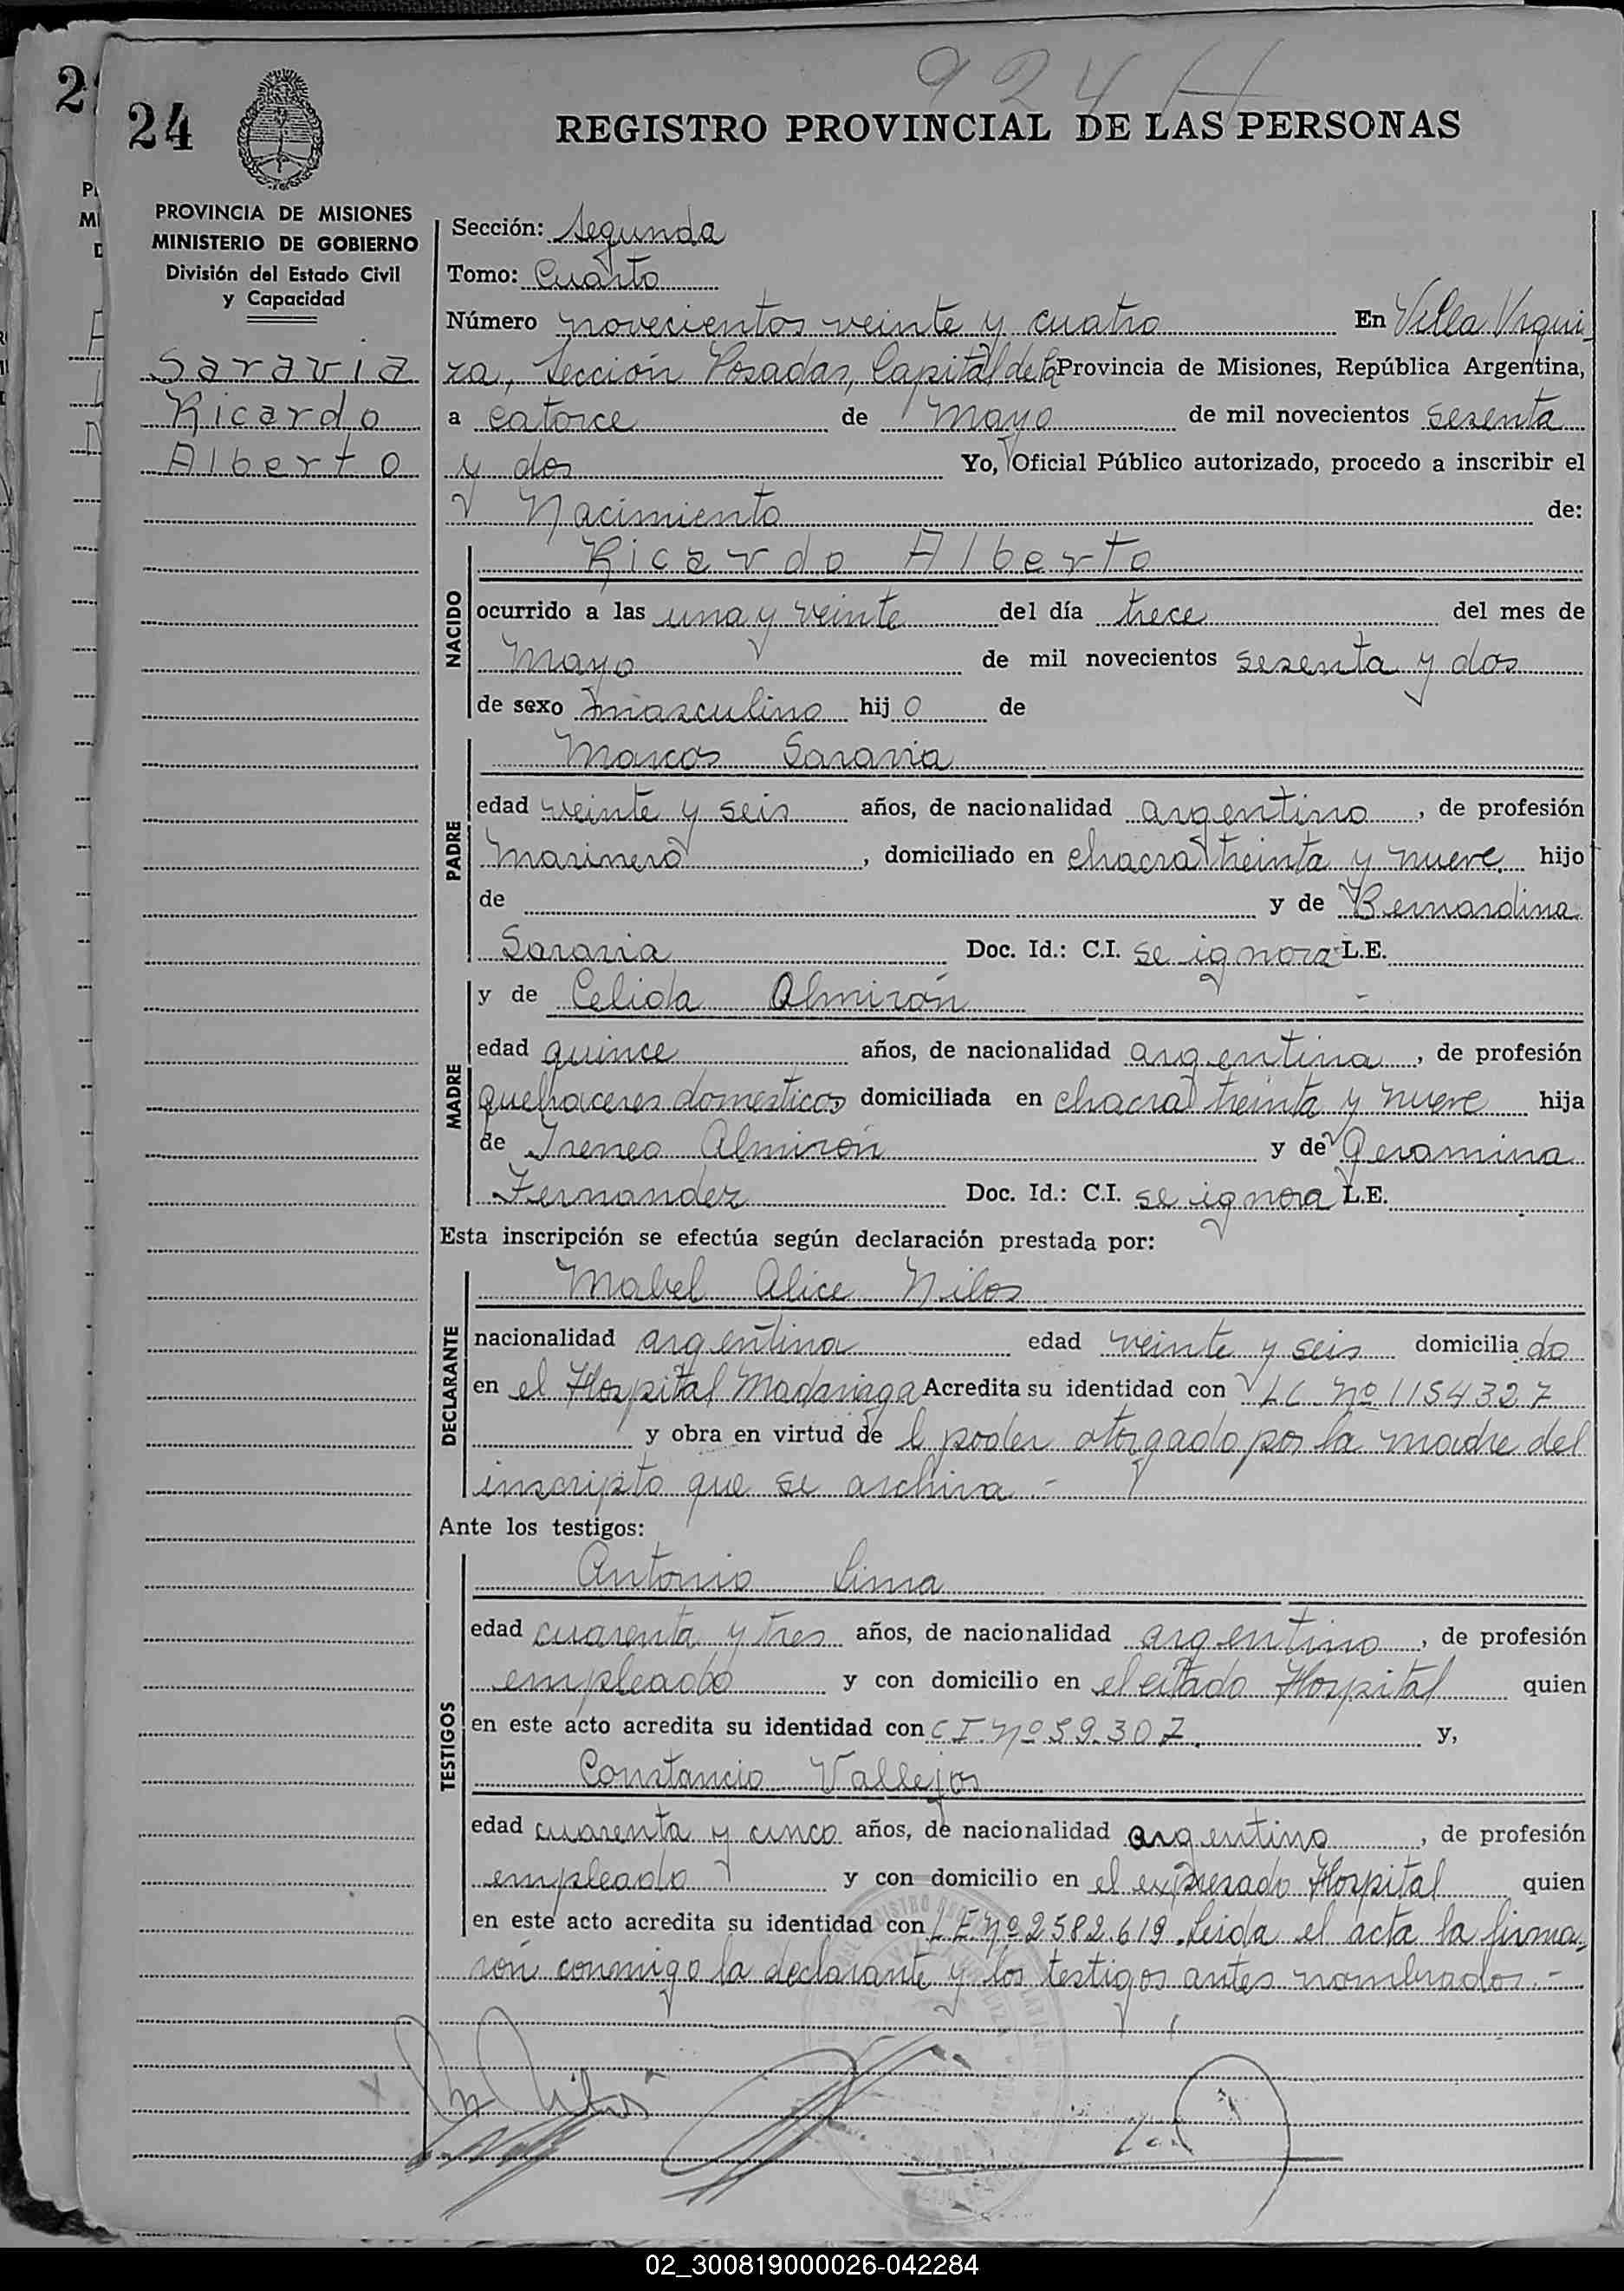 924
24
REGISTRO PROVINCIAL DE LAS PERSONAS
PROVINCIA DE MISIONES
MINISTERIO DE GOBIERNO
División del Estado Civil
y Capacidad
Saravia
Ricardo
Alberto
Sección: Segunda
Tomo: Cuarto
Número novecientos veinte y cuatro En Villa Urqui
za, Sección Posadas, Capital de la Provincia de Misiones, República Argentina,
a catorce de Mayo de mil novecientos sesenta
y dos Yo, Oficial Público autorizado, procedo a inscribir el
Nacimiento de:
NACIDO
Ricardo Alberto
ocurrido a las una y veinte del día trece del mes de
Mayo de mil novecientos sesenta y dos
de sexo masculino hijo de
PADRE
Marcos Saravia
edad veinte y seis años, de nacionalidad argentino, de profesión
Marinero, domiciliado en chacra treinta y nueve hijo
de y de Bernardina
Saravia Doc. Id.: C.I. se ignora L.E.
MADRE
y de Celida Almirón
edad quince años, de nacionalidad argentina, de profesión
quehaceres domesticos domiciliada en chacra treinta y nueve hija
de Ireneo Almirón y de Geramina
Fernandez Doc. Id.: C.I. se ignora L.E.
Esta inscripción se efectúa según declaración prestada por:
DECLARANTE
Mabel Alice Nilos
nacionalidad argentina edad veinte y seis domiciliado
en el Hospital Madariaga Acredita su identidad con LC Nº 1154327
y obra en virtud de l poder otorgado por la madre del
inscripto que se archiva.-
Ante los testigos:
TESTIGOS
Antonio Lima
edad cuarenta y tres años, de nacionalidad argentino, de profesión
empleado y con domicilio en el citado Hospital quien
en este acto acredita su identidad con C I. Nº 59.307. y,
Constancio Vallejos
edad cuarenta y cinco años, de nacionalidad argentino, de profesión
empleado y con domicilio en el expresado Hospital quien
en este acto acredita su identidad con L E. Nº 2582.619. Leida el acta la firma-
ron conmigo la declarante y los testigos antes nombrados.-
02_300819000026-042284